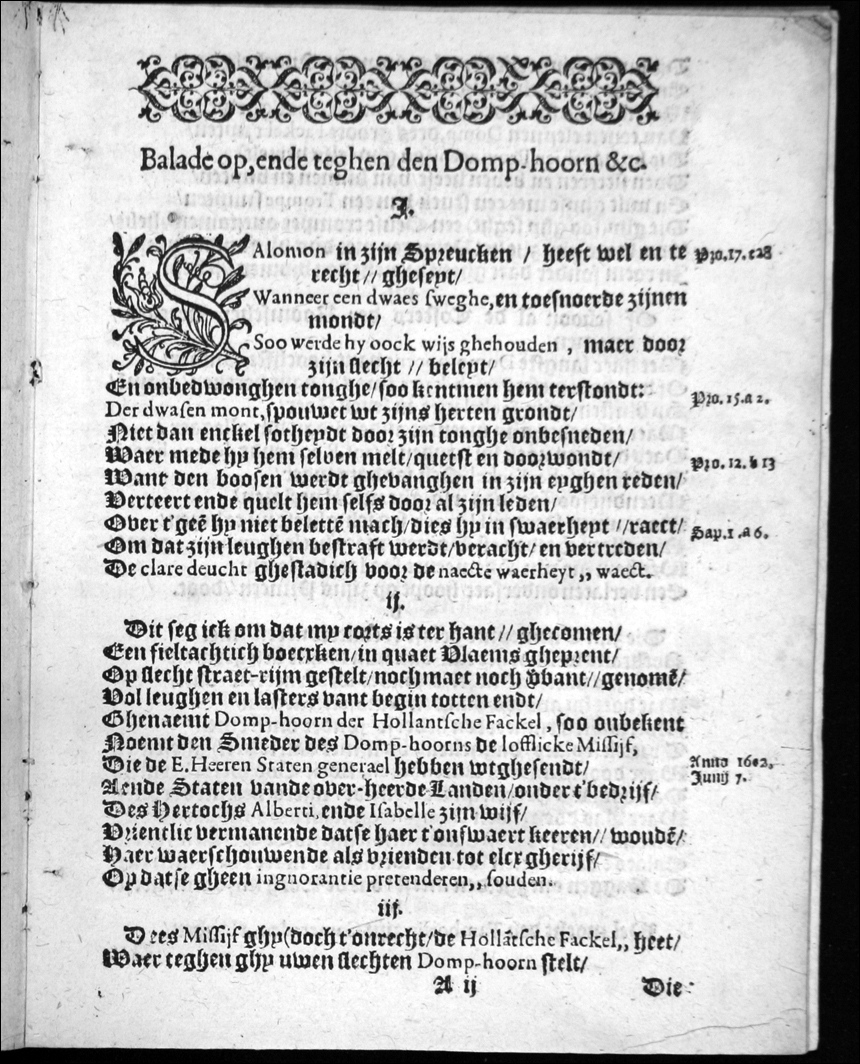 Balade op, ende teghen den Domp-hoorn &c.
I.
SAlomon in zijn Spreucken / heeft wel en te Pro.17.c28
recht // gheseyt/
Wanneer een dwaes sweghe, en toesnoerde zijnen
mondt/
Soo werde hy oock wijs ghehouden , maer door
zijn slecht // beleyt/
En onbedwonghen tonghe/soo kentmen hem terstondt:
Der dwasen mont, spouwet wt zijns herten grondt/ Pro.15.a 2.
Niet dan enckel sotheydt door zijn tonghe onbesneden/
Waer mede hy hem selven melt/quetst en doorwondt/ Pro.12.b 13
Want den boosen werdt ghevanghen in zijn eyghen reden/
Verteert ende quelt hem selfs door al zijn leden/
Over t'geẽ hy niet belettẽ mach/dies hy in swaerheyt //raect/ Sap.1.a 6.
Om dat zijn leughen bestraft werdt/veracht/en vertreden/
De clare deucht ghestadich voor de naecte waerheyt ,, waect.
ij.
Dit seg ick om dat my corts is ter hant // ghecomen/
Een fieltachtich boecxken/in quaet Vlaems gheprent/
Op slecht straet-rijm gestelt/noch maet noch vant//genomẽ/
Vol leughen en lasters vant begin totten endt/
Ghenaemt Domp-hoorn der Hollantsche Fackel, soo onbekent
Noemt den Smeder des Domp-hoorns de lofflicke Missijf,
Die de E. Heeren Staten generael hebben wtghesendt/ Anno 1602.
Aende Staten vande over-heerde Landen/onder t'bedrijf/ Junij 7.
Des Hertochs Alberti, ende Isabelle zijn wijf/
Vrientlic vermanende datse haer t'onswaert keeren// woudẽ/
Haer waerschouwende als vrienden tot elcx gherijf/
Op datse gheen ingnorantie pretenderen,, souden.
iij.
Dees Missijf ghy (doch t'onrecht/de Hollãtsche Fackel,, heet/
Waer teghen ghy uwen slechten Domp-hoorn stelt/
A ij Die